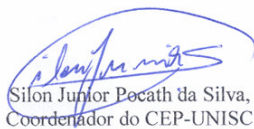 Silon Junior Pocath da Silva,
Coordenador do CEP-UNISC